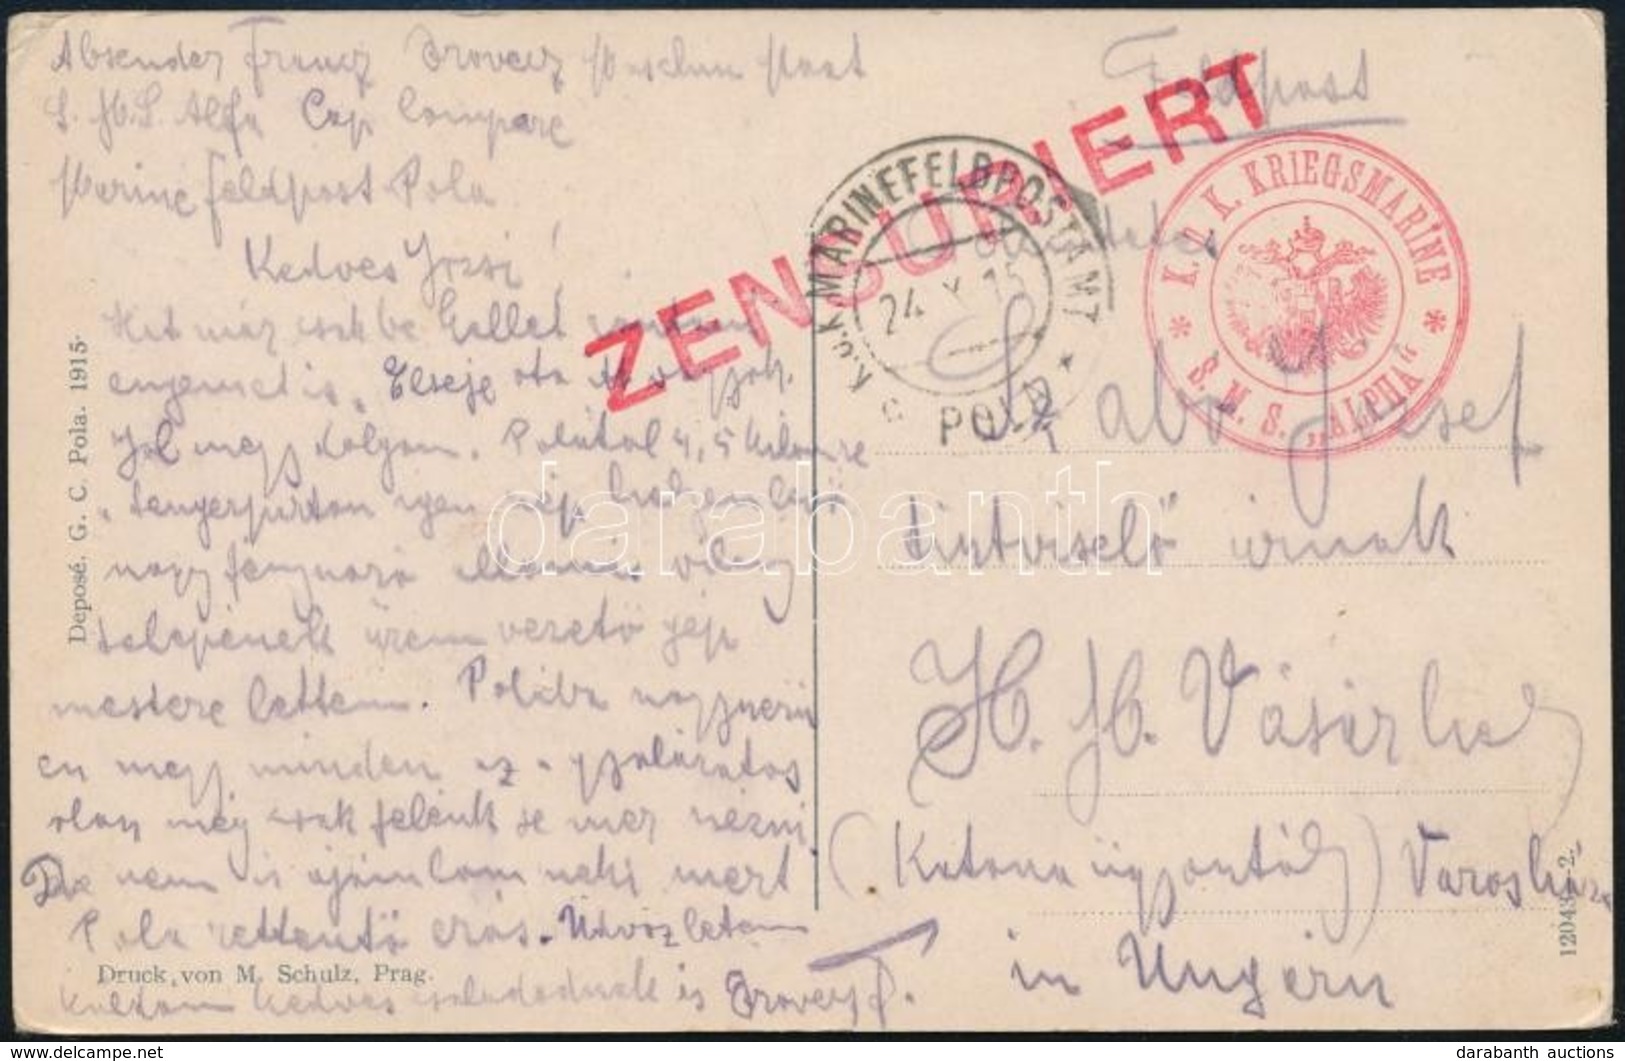 Absender Franz Orovecz Maschin Maat
S. M. S. Alfa Cap Compare
Marine feldpost Pola
Kedves Jozsi!
Hat már csekbe kellet
engemet is.
Jol megy dolgom. Polátol 4,5 Kilomre
tengerparton igen szép
nagy
telepenek üzem vezető gép
mestere lettem. Polába nagyszerü
en megy minden az
olan még csak felénk se mer nézni
De nem is ajánlom neki mert
Pola rettentő erős. Udvözletem
küldöm kedves családodnak is Orovecz F.
Deposé. G. C. Pola. 1915.
Druck von M. Schulz, Prag.
Feldpost
ZENSURIERT
K.U.K. MARINEFELDPOSTAMT
24 X 15
POLA
K. u. K. KRIEGSMARINE
S. M. S. „ALPHA“
Szabó József
tisztviselő urnak
H. M. Vásárhely
(Katona ügyosztály) Varosháza
in Ungern
12043 2.
darabanth
darabanth auctions